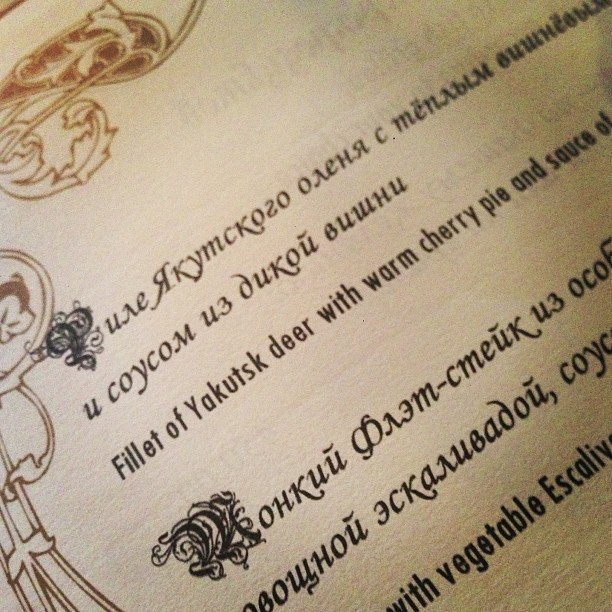 Филе Якутского оленя с тёплым вишнёвым
и соусом из дикой вишни
Fillet of Yakutsk deer with warm cherry pie and sauce of
Тонкий Флэт-стейк из
овощной эскаливадой,
with vegetable